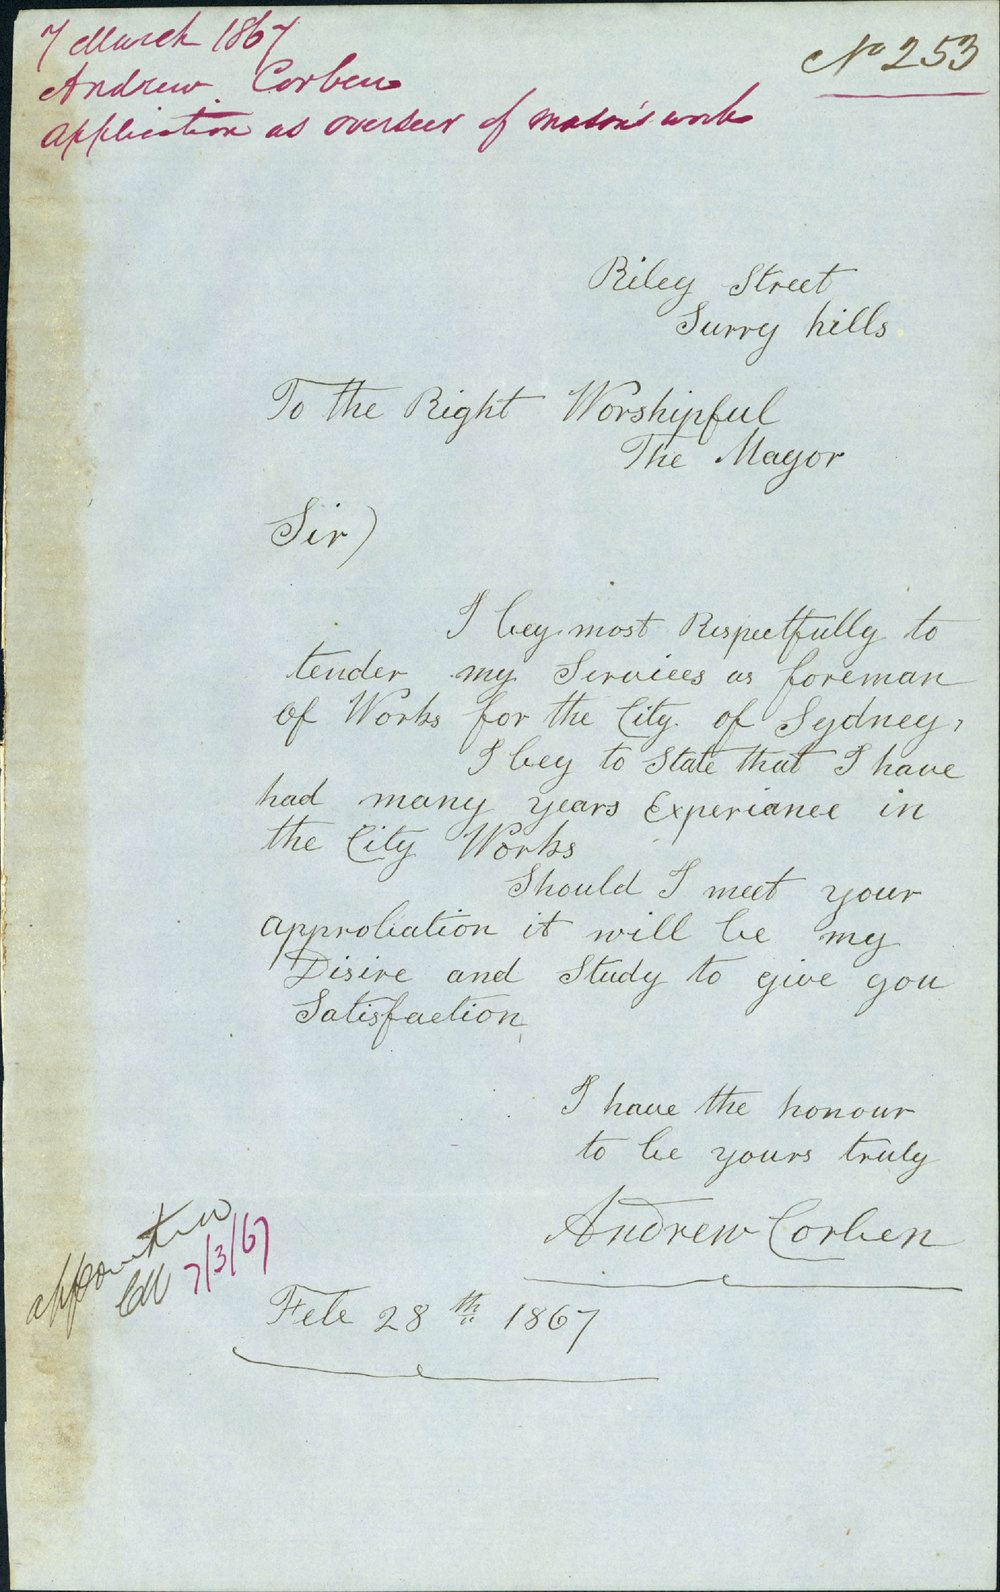 7 March 1867
Andrew Corben
application as overseer of mason's work
No 253
Riley Street
Surry hills
To the Right Worshipful
The Mayor
Sir)
I beg most Respectfully to
tender my Services as foreman
of Works for the City of Sydney,
I beg to State that I have
had many years Experiance in
the City Works
Should I meet your
approbation it will be my
Disire and Study to give you
Satisfaction
I have the honour
to be yours truly
Andrew Corben
7/3/67
Feb 28th 1867